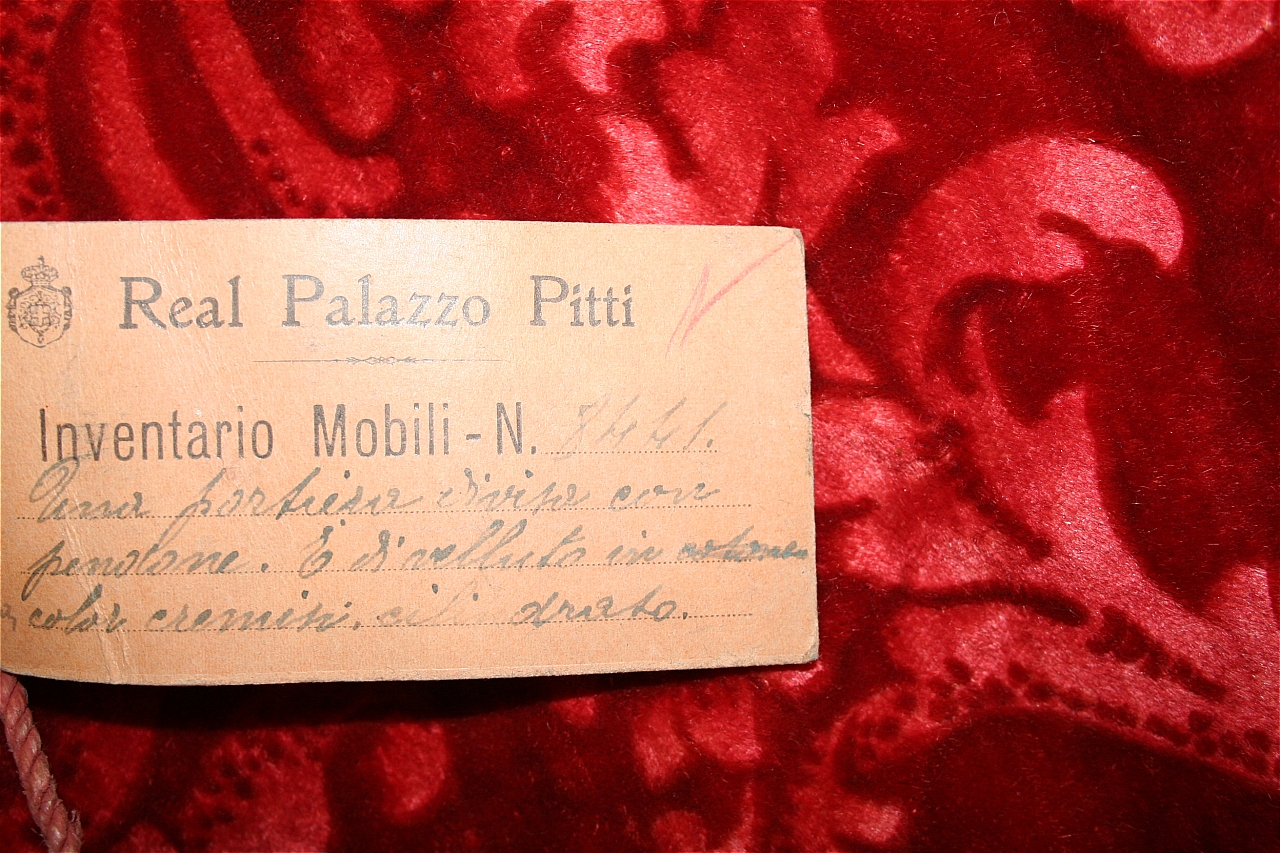 Real Palazzo Pitti
Inventario Mobili - N. 8441.
Una portiera divisa con
pendone. È di velluto in cotone
color cremisi, cilindrato.